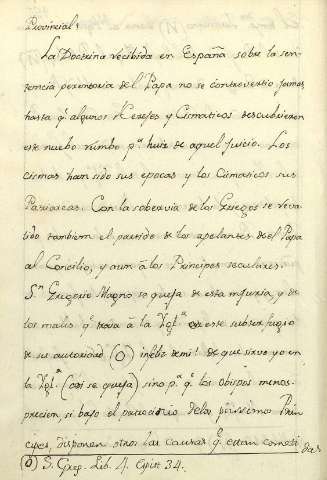 Provincial:
La Doctrina recibida en España sobre la sen-
tencia perentoria del Papa no se controvertio jamas,
hasta q.e algunos Hereges y Cismaticos descubrieron
este nuebo rumbo p.a huir de aquel juicio. Los
cismas han sido sus epocas y los Cismaticos sus
Patriarcas. Con la sobervia de los Griegos se
tambien el partido de los apelantes del Papa
al Concilio, y aun â los Principes seculares.
S.n Gregorio Magno se queja de esta injuria, y de
los males q.e traia â la Ygl.a este subterfugio
de su autoridad (O) infeliz de mi! de que sirvo yo en
la Ygl.a (asi se queja) sino p.a q.e los obispos menos-
precien, si bajo el patrocinio de los Prin-
cipes, disponen otros las causas q.e estan cometi das
(O) S. Greg. Lib. 4. Epist. 34.